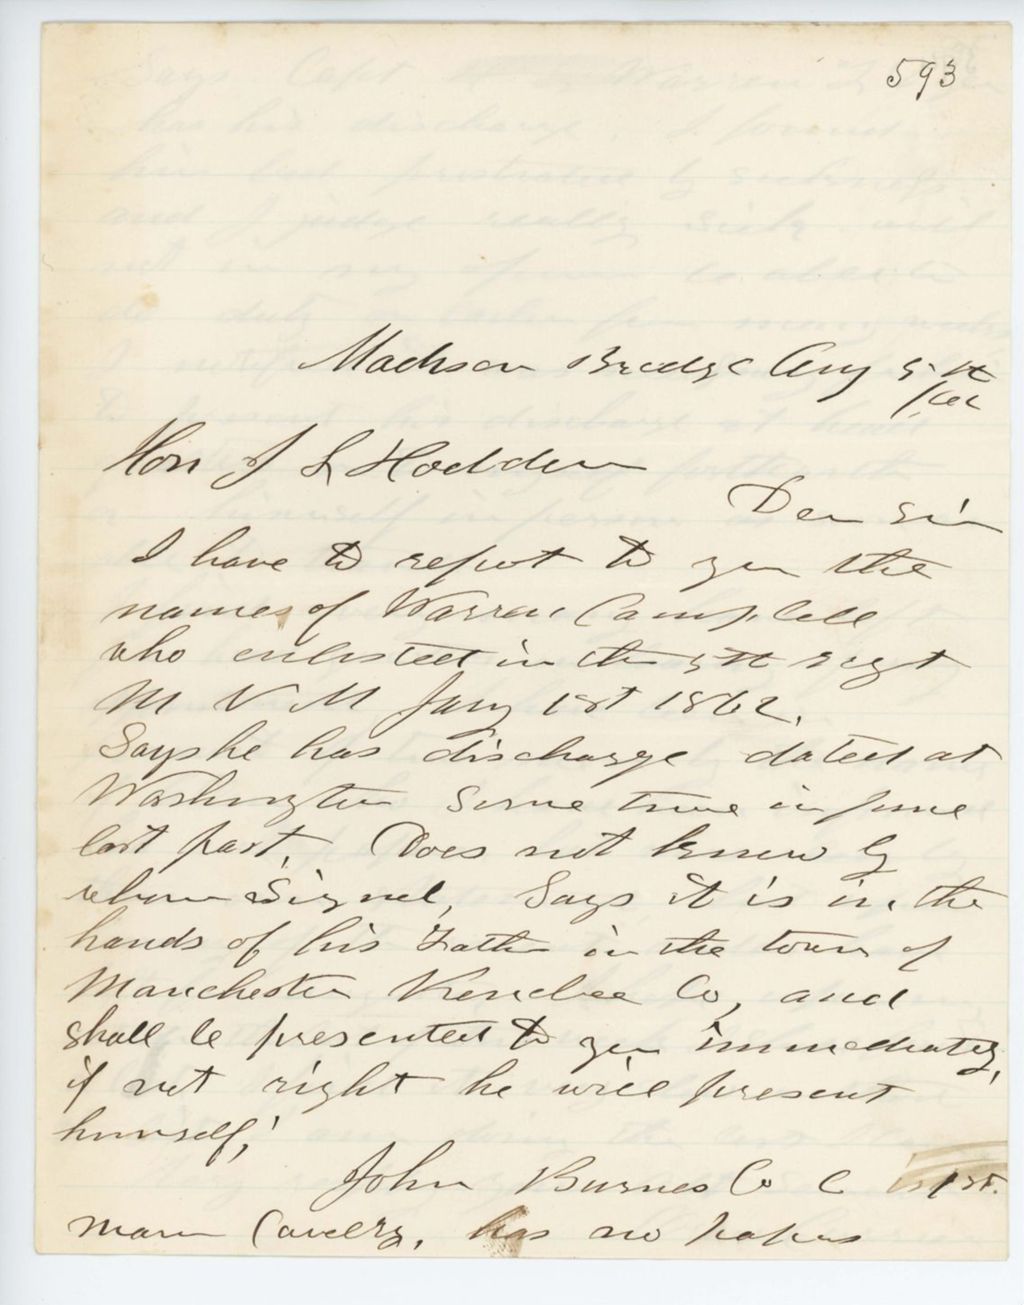 593
Madison Bridge Aug 5th
/62
Hon J L Hodsdon
Dear Sir
I have to report to you the
names of Warren Campbell
who enlisted in the 5th regt
M V M Jany 1st 1862.
Says he has discharge dated at
Washington some time in June
last past. Does not know by
whom signed, Says it is in the
hands of his Father in the town of
Manchester Kenebec Co, and
shall be presented to you immediately,
if not right he will present
himself,
John Burnes Co C 1st.
Main Cavelry, has no papers